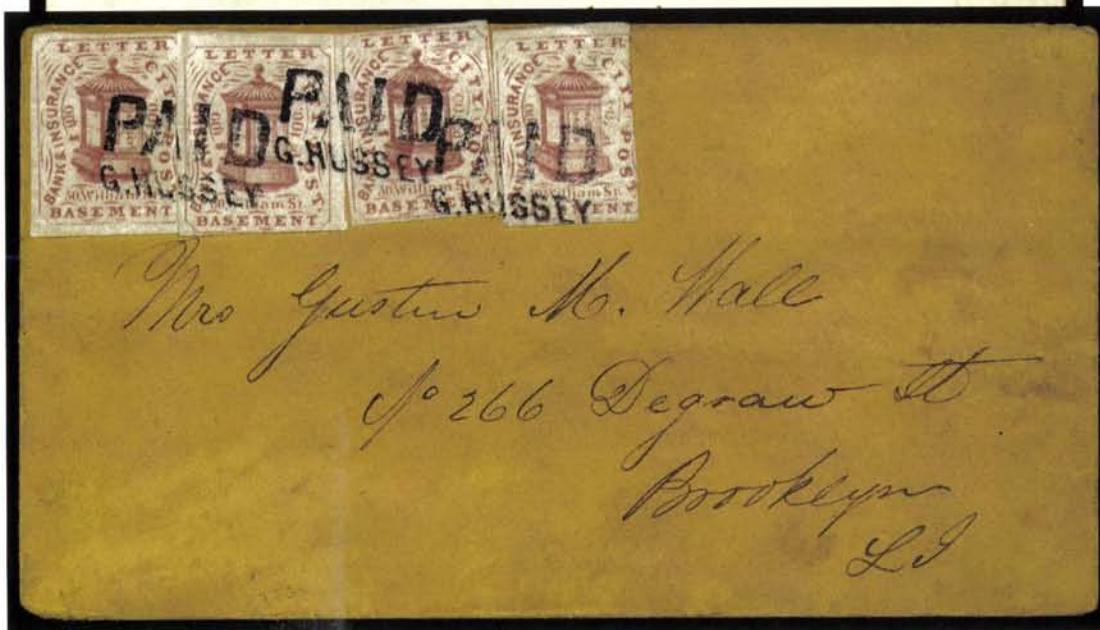 LETTER CITY POST BANK & INSURANCE 50 William St. BASEMENT
LETTER BANK & INSURANCE POST William St. BASEMENT
LETTER CITY POST BANK & INSURANCE 50 William St. BASEMENT
LETTER CITY POST BANK & INSURANCE William St. BASEMENT
PAID
G. HUSSEY
PAID
G. HUSSEY
PAID
G. HUSSEY
Mrs Gustin M. Wall
No 266 Degraw St
Brooklyn
L I